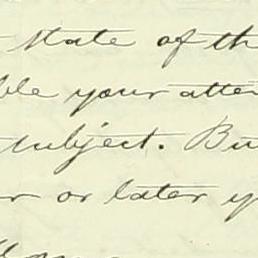 state of th
ble your atten
subject. Bu
or later y